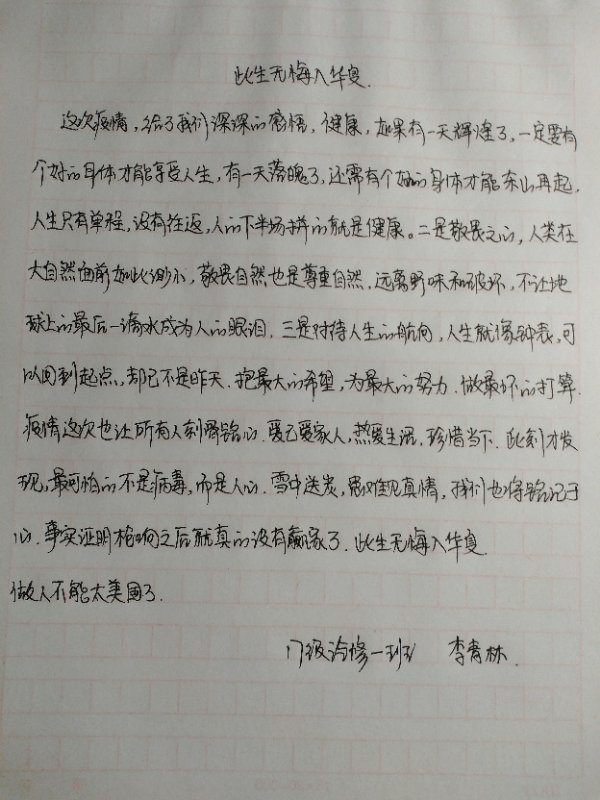 此生无悔入华夏.
这次疫情，给了我们深深的感悟，健康，如果有一天辉煌了，一定要有
个好的身体才能享受人生，有一天落魄了，还需有个好的身体才能东山再起，
人生只有单程，没有往返，人的下半场拼的就是健康。二是敬畏之心，人类在
大自然面前如此渺小，敬畏自然也是尊重自然，远离野味和破坏，不让地
球上的最后一滴水成为人的眼泪，三是对待人生的航向，人生就像钟表，可
以回到起点，却已不是昨天、抱最大的希望，为最大的努力、做最坏的打算.
疫情这次也让所有人刻骨铭心、爱己爱家人，热爱生活，珍惜当下、此刻才发
现，最可怕的不是病毒，而是人心、雪中送炭，患难见真情，我们也将铭记于
心、事实证明枪响之后就真的没有赢家了、此生无悔入华夏
做人不能太美国了.
级冶修一班 李青林.